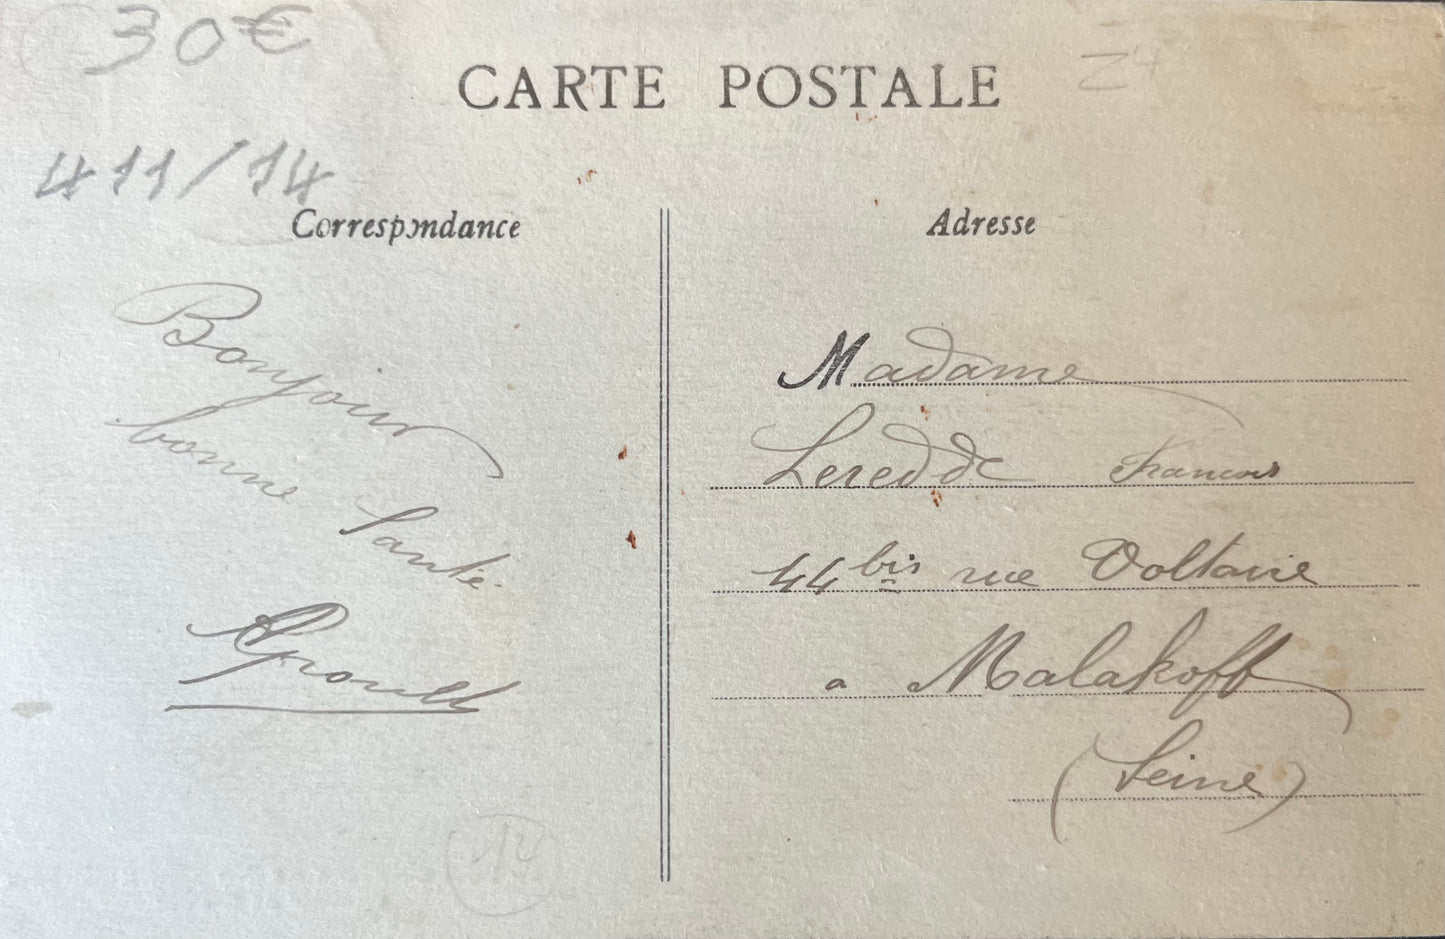 30€
CARTE POSTALE
Z4
411/14
Correspondance
Adresse
Bonjour
bonne Santé
Groult
Madame
Leredde Francois
44 bis rue Voltaire
a Malakoff
(Seine)
14